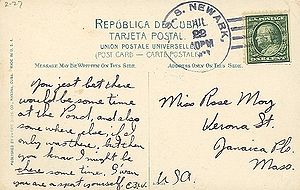 2-27
REPÚBLICA DE CUBA
TARJETA POSTAL
UNION POSTALE UNIVERSELLE
(POST CARD — CARTE POSTALE)
S. NEWARK,
22
MESSAGE MAY BE WRITTEN ON THIS SIDE.
ADDRESS ONLY ON THIS SIDE.
You just bet there
would be some time
at the Pond, and also
some where else, if I
only was there, but then
you know I might be
there some time. I swan
you are a sport yourself.
Miss Rose May
Verona St.
Jamaica Pls.
Mass.
U.S.A.